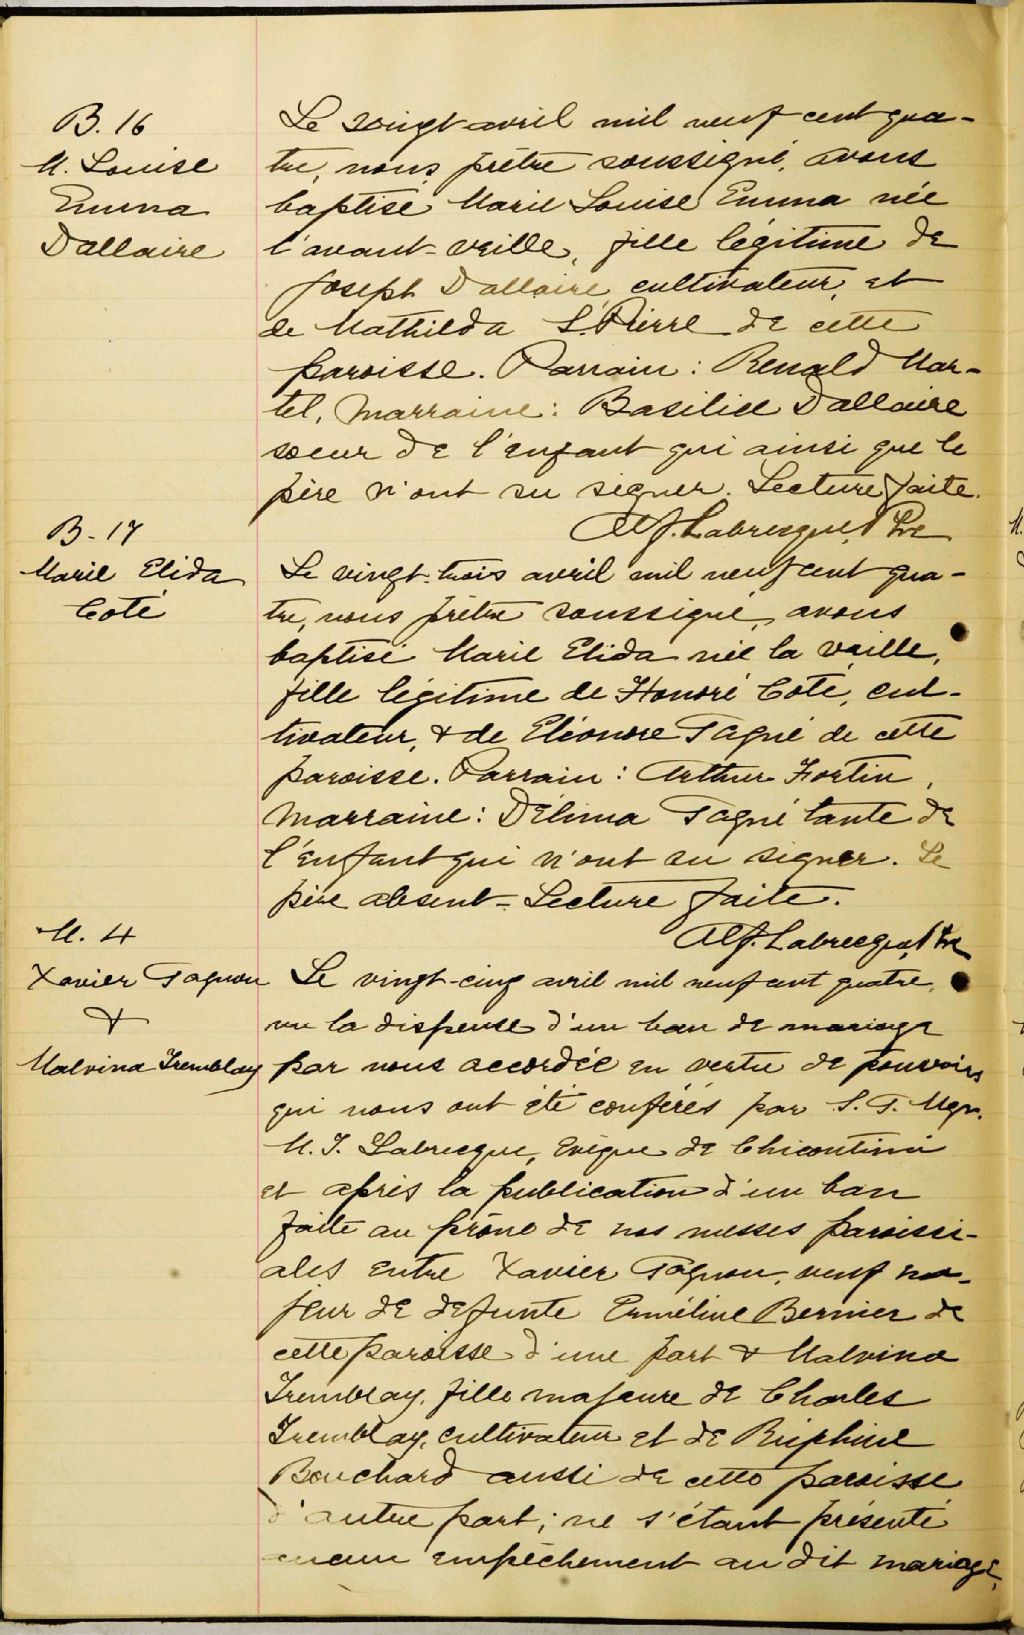 B. 16
M. Louise
Emma
Dallaire
Le vingt avril mil neuf cent qua-
tre, nous prêtre soussigné, avons
baptisé Marie Louise Emma née
l'avant-veille, fille légitime de
Joseph Dallaire, cultivateur, et
de Mathilda St. Pierre de cette
paroisse. Parrain : Renald Mar-
tel, Marraine : Basilice Dallaire
soeur de l'enfant qui ainsi que le
père n'ont su signer. Lecture faite.
Alf. Labrecque, Ptre
B. 17
Marie Elida
Coté
Le vingt-trois avril mil neuf cent qua-
tre, nous prêtre soussigné, avons
baptisé Marie Elida née la veille,
fille légitime de Honoré Coté, cul-
tivateur, & de Eléonore Gagné de cette
paroisse. Parrain : Arthur Fortin,
Marraine : Délima Gagné tante de
l'enfant qui n'ont su signer. Le
père absent - Lecture faite.
Alf. Labrecque, Ptre
M. 4
Xavier Gagnon
&
Malvina Tremblay
Le vingt-cinq avril mil neuf cent quatre,
vu la dispense d'un ban de mariage
par nous accordée en vertu de pouvoirs
qui nous ont été conférés par S. G. Mgr.
M. T. Labrecque, Evêque de Chicoutimi
et après la publication d'un ban
faite au prône de nos messes paroissi-
ales entre Xavier Gagnon, veuf ma-
jeur de defunte Erméline Bernier de
cette paroisse d'une part & Malvina
Tremblay, fille majeure de Charles
Tremblay, cultivateur et de
Bouchard aussi de cette paroisse
d'autre part ; ne s'étant présenté
aucun empêchement au dit mariage,